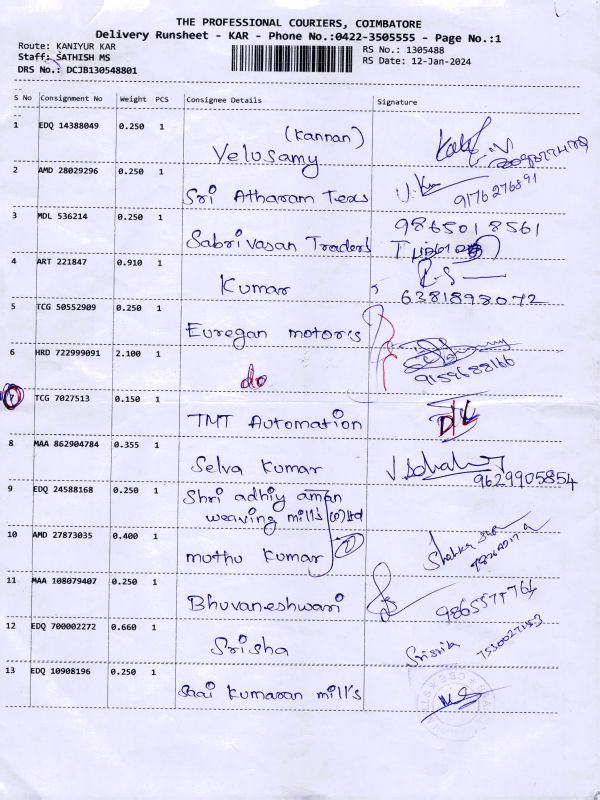 THE PROFESSIONAL COURIERS, COIMBATORE
Delivery Runsheet - KAR - Phone No.:0422-3505555 - Page No.:1
Route: KANIYUR KAR
RS No.: 1305488
Staff: SATHISH MS
RS Date: 12-Jan-2024
DRS No.: DCJB130548801
S No Consignment No Weight PCS Consignee Details Signature
1 EDQ 14388049 0.250 1 (Kannan)
Velusamy
2 AMD 28029296 0.250 1
Sri Atharam Texs
3 MDL 536214 0.250 1 9865018561
Sabrivasan Traders
4 ART 221847 0.910 1
Kumar 6381898072
5 TCG 50552909 0.250 1
Euregan motor's
6 HRD 722999091 2.100 1
do 9159688166
7 TCG 7027513 0.150 1
TMT Automation D/L
8 MAA 862904784 0.355 1
Selva Kumar 9629905854
9 EDQ 24588168 0.250 1 Shri adhiy aman
weaving mill's (P) Ltd
10 AMD 27873035 0.400 1
muthu kumar
11 MAA 108079407 0.250 1
Bhuvaneshwari
12 EDQ 700002272 0.660 1
Srisha
13 EDQ 10908196 0.250 1
Saai kumaran mill's